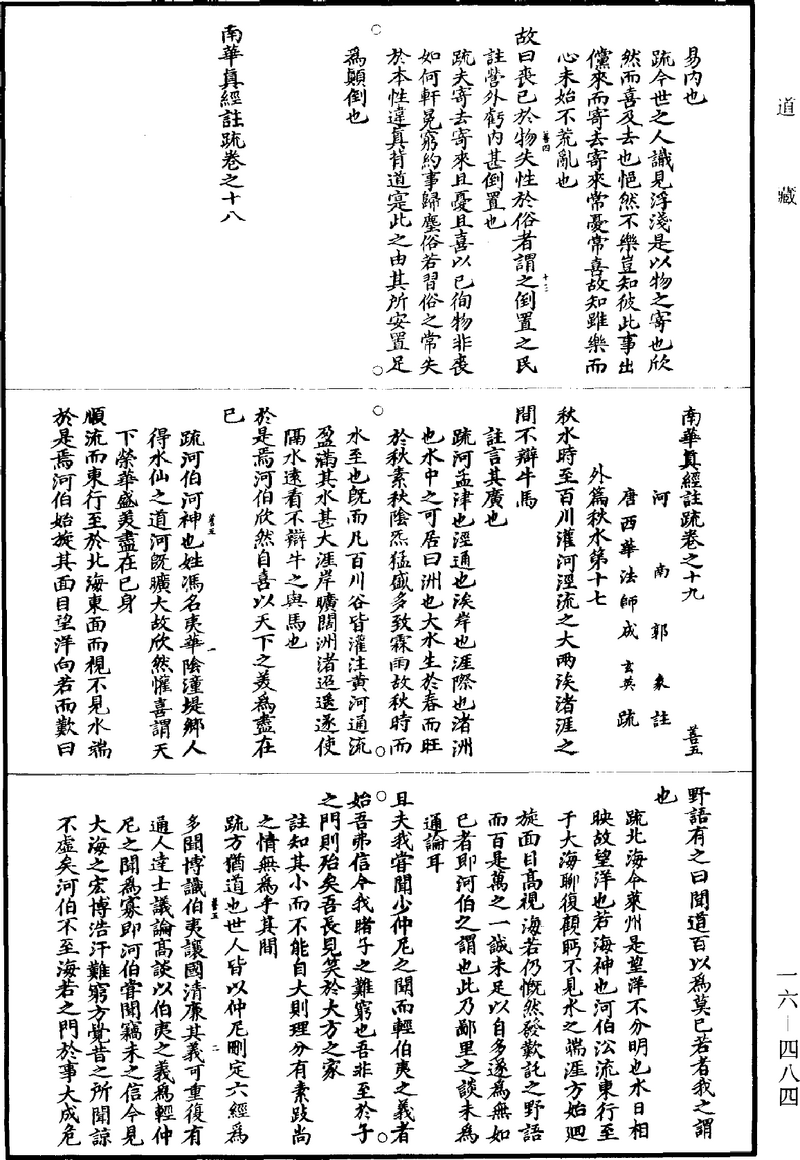 道藏
易內也
疏今世之人識見浮淺是以物之寄也欣
然而喜及去也悒然不樂豈知彼此事出
儻來而寄去寄來常憂常喜故知雖樂而
心未始不荒亂也
故曰喪己於物失性於俗者謂之倒置之民
善四 十二
註營外虧內甚倒置也
疏夫寄去寄來且憂且喜以己徇物非喪
如何軒冕窮約事歸塵俗若習俗之常失
於本性違真背道寔此之由其所安置足
為顛倒也
南華真經註疏卷之十八
南華真經註疏卷之十九 善五
河南郭象註
唐西華法師成玄英疏
外篇秋水第十七
秋水時至百川灌河涇流之大兩涘渚涯之
間不辯牛馬
註言其廣也
疏河孟津也涇通也涘岸也涯際也渚洲
也水中之可居曰洲也大水生於春而旺
於秋素秋陰炁猛盛多致霖雨故秋時而
水至也既而凡百川谷皆灌注黃河通流
盈滿其水甚大涯岸曠闊洲渚迢遞遂使
隔水遠看不辯牛之與馬也
於是焉河伯欣然自喜以天下之美為盡在
已
善五 一
疏河伯河神也姓馮名夷華陰潼堤鄉人
得水仙之道河既曠大故欣然懽喜謂天
下榮華盛美盡在己身
順流而東行至於北海東面而視不見水端
於是焉河伯始旋其面目望洋向若而歎曰
野語有之曰聞道百以為莫已若者我之謂
也
疏北海今萊州是望洋不分明也水日相
映故望洋也若海神也河伯沿流東行至
于大海聊復顧眄不見水之端涯方始迴
旋面目高視海若仍慨然發歎託之野語
而百是萬之一誠未足以自多遂為無如
已者即河伯之謂也此乃鄙里之談未為
通論耳
且夫我嘗聞少仲尼之聞而輕伯夷之義者
始吾弗信今我睹子之難窮也吾非至於子
之門則殆矣吾長見笑於大方之家
註知其小而不能自大則理分有素跂尚
之情無為乎其間
善五 二
疏方猶道也世人皆以仲尼刪定六經為
多聞博識伯夷讓國清廉其義可重復有
通人達士議論高談以伯夷之義為輕仲
尼之聞為寡即河伯嘗聞竊未之信今見
大海之宏博浩汗難窮方覺昔之所聞諒
不虛矣河伯不至海若之門於事大成危
一六－四八四